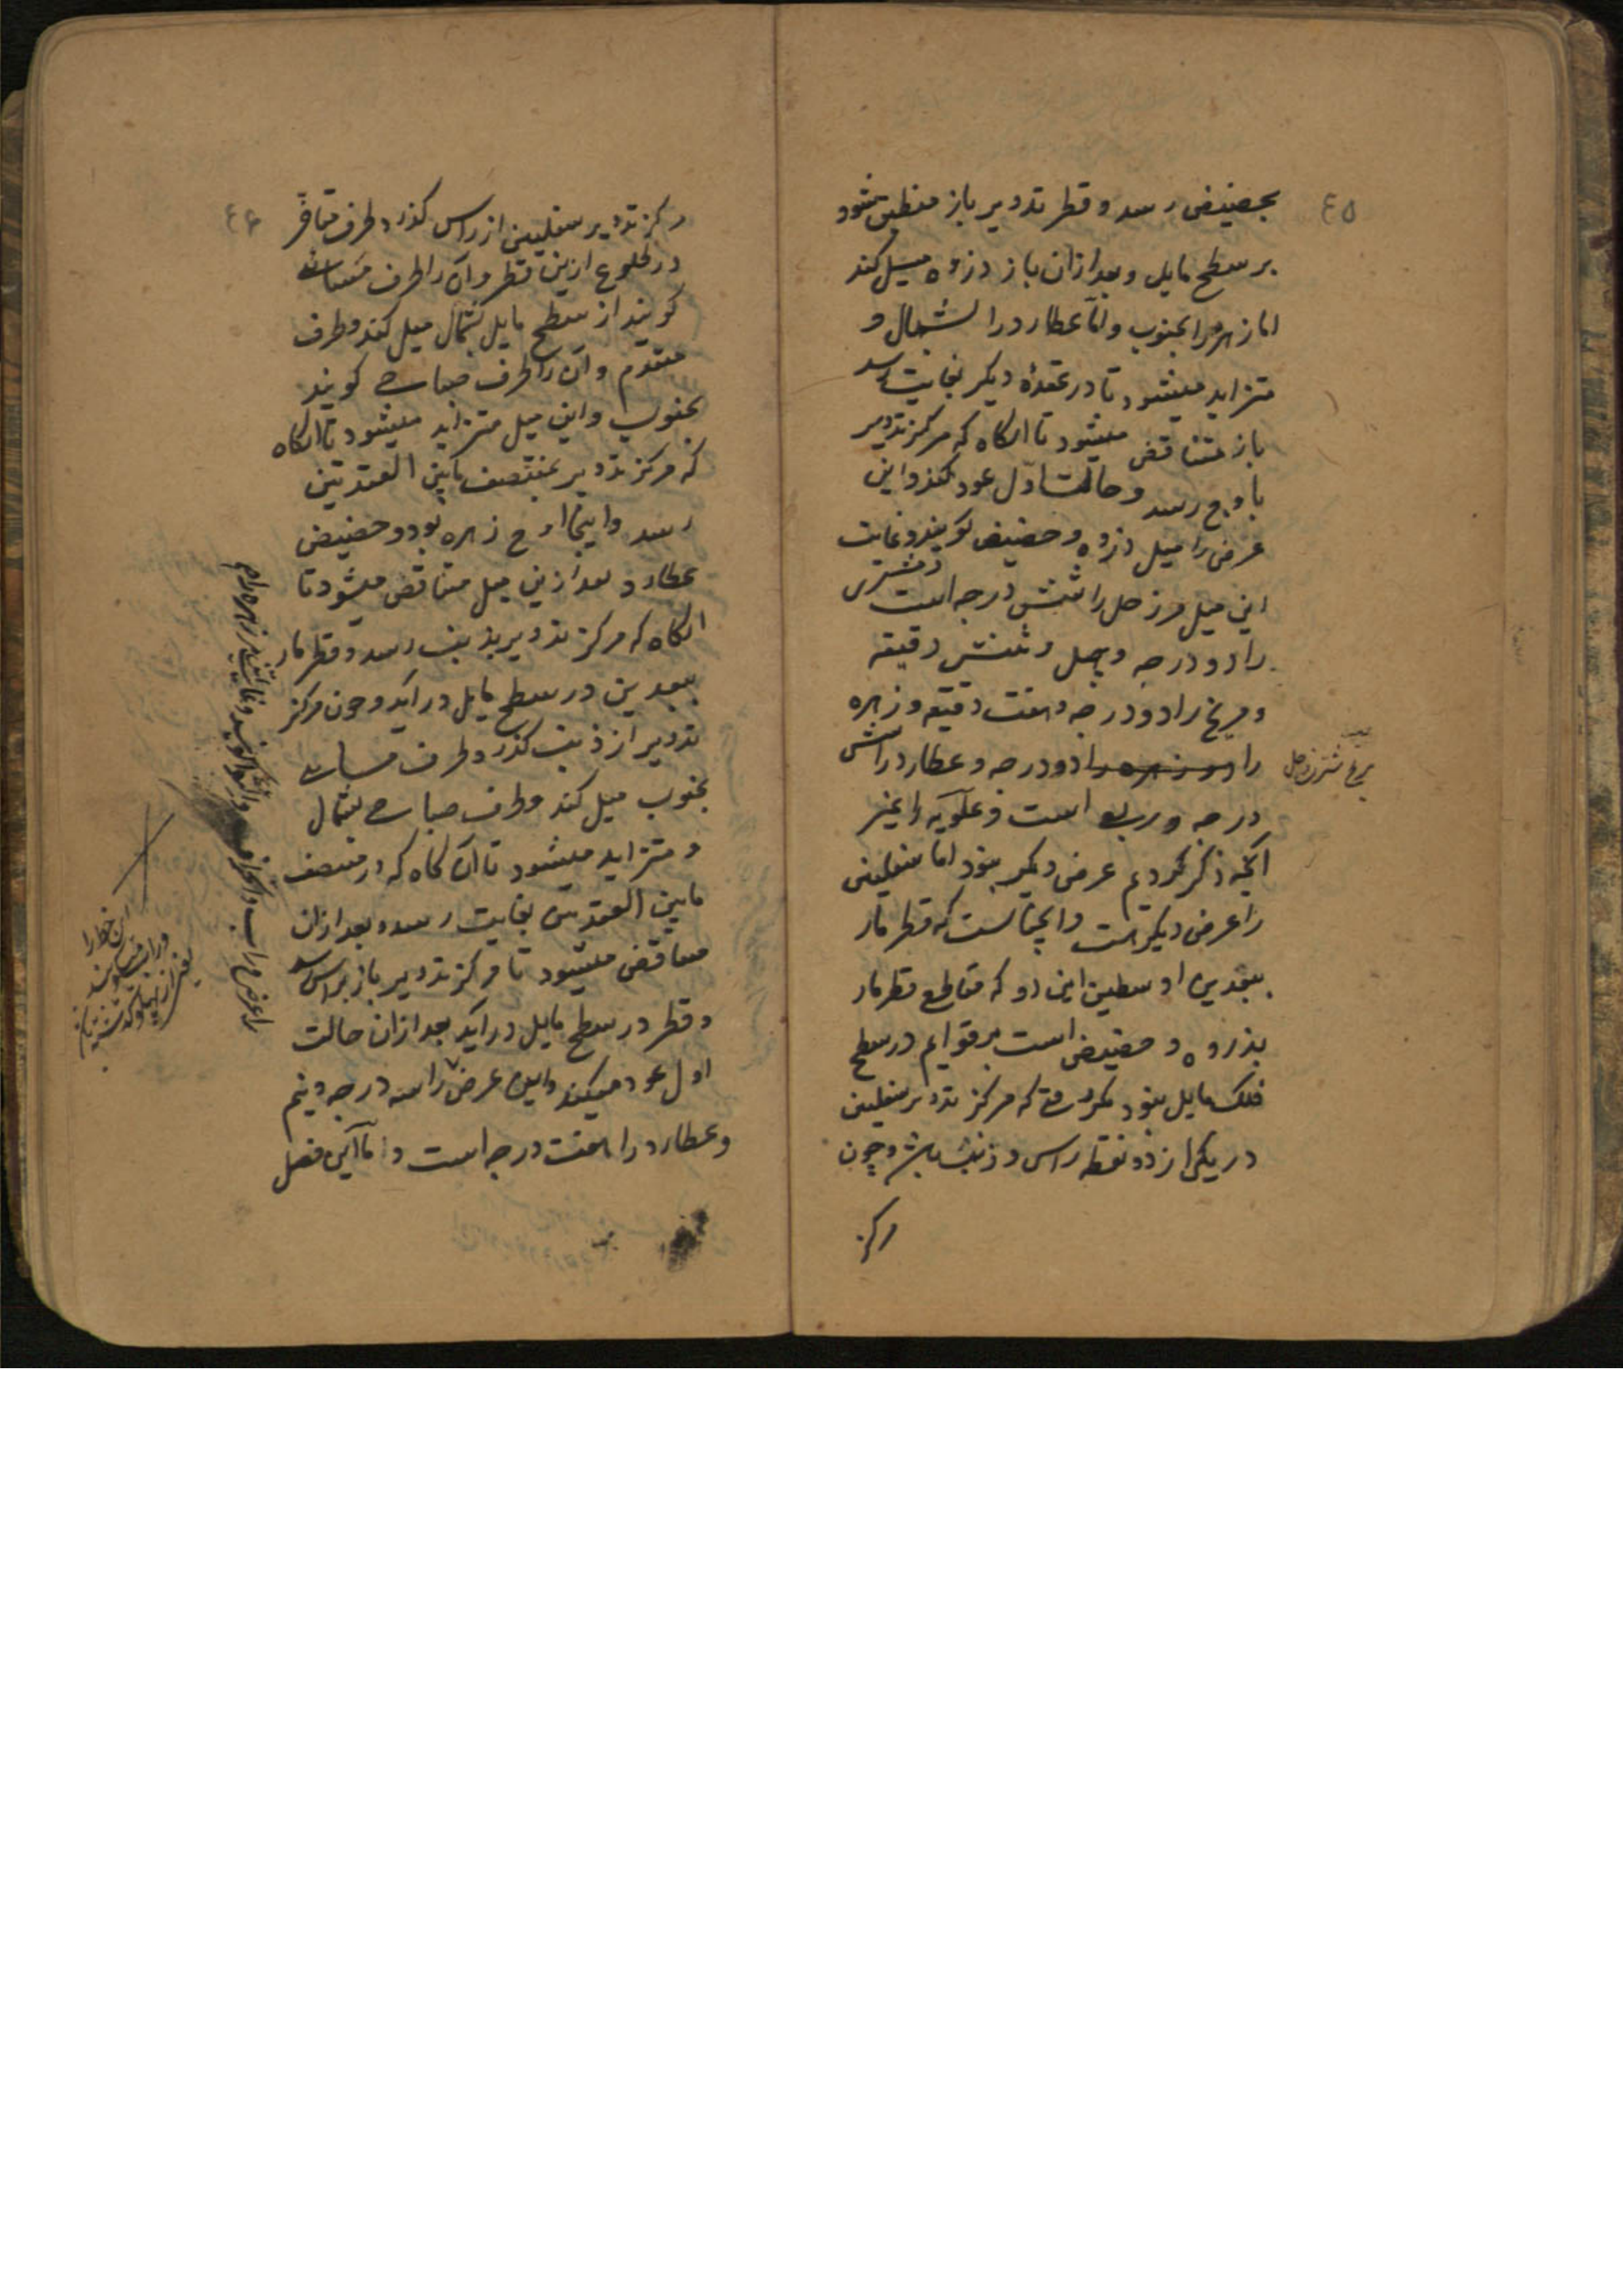 ٤٥
بحضیض رسد و قطر تدویر باز منطبق شود
بر سطح مایل و بعد ازان باز ذروه میل کند
اما زهره را بجنوب و اما عطارد را بشمال و
متزاید میشود تا در عقدهٔ دیکر بغایت رسد
باز متناقض میشود تا انکاه که مرکز تدویر
باوج رسد و حالت اول عود کند و این
عرض را میل ذروه و حضیض کویند و غایت
این میل مر زحل را شش درجه است و مشتری
را دو درجه و چهل و شش دقیقه
و مریخ را دو درجه و هفت دقیقه و زهره
را دو درجه و عطارد را شش
درجه و ربع است و علویه را غیر
آنچه ذکر کردیم عرض دیکر نبود اما سفلیین
را عرض دیکر است و انچنانست که قطر مار
ببعدین اوسطین این دو که مقاطع قطر مار
بذروه و حضیض است بر قوایم در سطح
فلک مایل نبود مکر وقتی که مرکز تدویر سفلیین
در یکی از دو نقطه راس و ذنب باشد و چون
مرکز
٤٦
مرکز تدویر سفلیین از راس کذرد طرف متاخر
در طلوع ازین قطر و آن را طرف مسائی
کویند از سطح مایل بشمال میل کند و طرف
متقدم و آن را طرف صباحی کویند
بجنوب و این میل متزاید میشود تا انکاه
که مرکز تدویر بمنتصف مابین العقدتین
رسد و اینجا اوج زهره بود و حضیض
عطارد و بعد ازین میل متناقض میشود تا
انکاه که مرکز تدویر بذنب رسد و قطر مار
ببعدین در سطح مایل در اید و چون مرکز
تدویر از ذنب کذرد و طرف مسائی
بجنوب میل کند و طرف صباحی بشمال
و متزاید میشود تا آن کاه که در منتصف
مابین العقدتین بغایت رسد و بعد ازان
متناقض میشود تا مرکز تدویر باز براس رسد
و قطر در سطح مایل در اید بعد ازان حالت
اول عود میکند و این عرض را سه درجه و نیم
و عطارد را هفت درجه است و اما این فصل
را عرض وراب و انحراف
این خط را